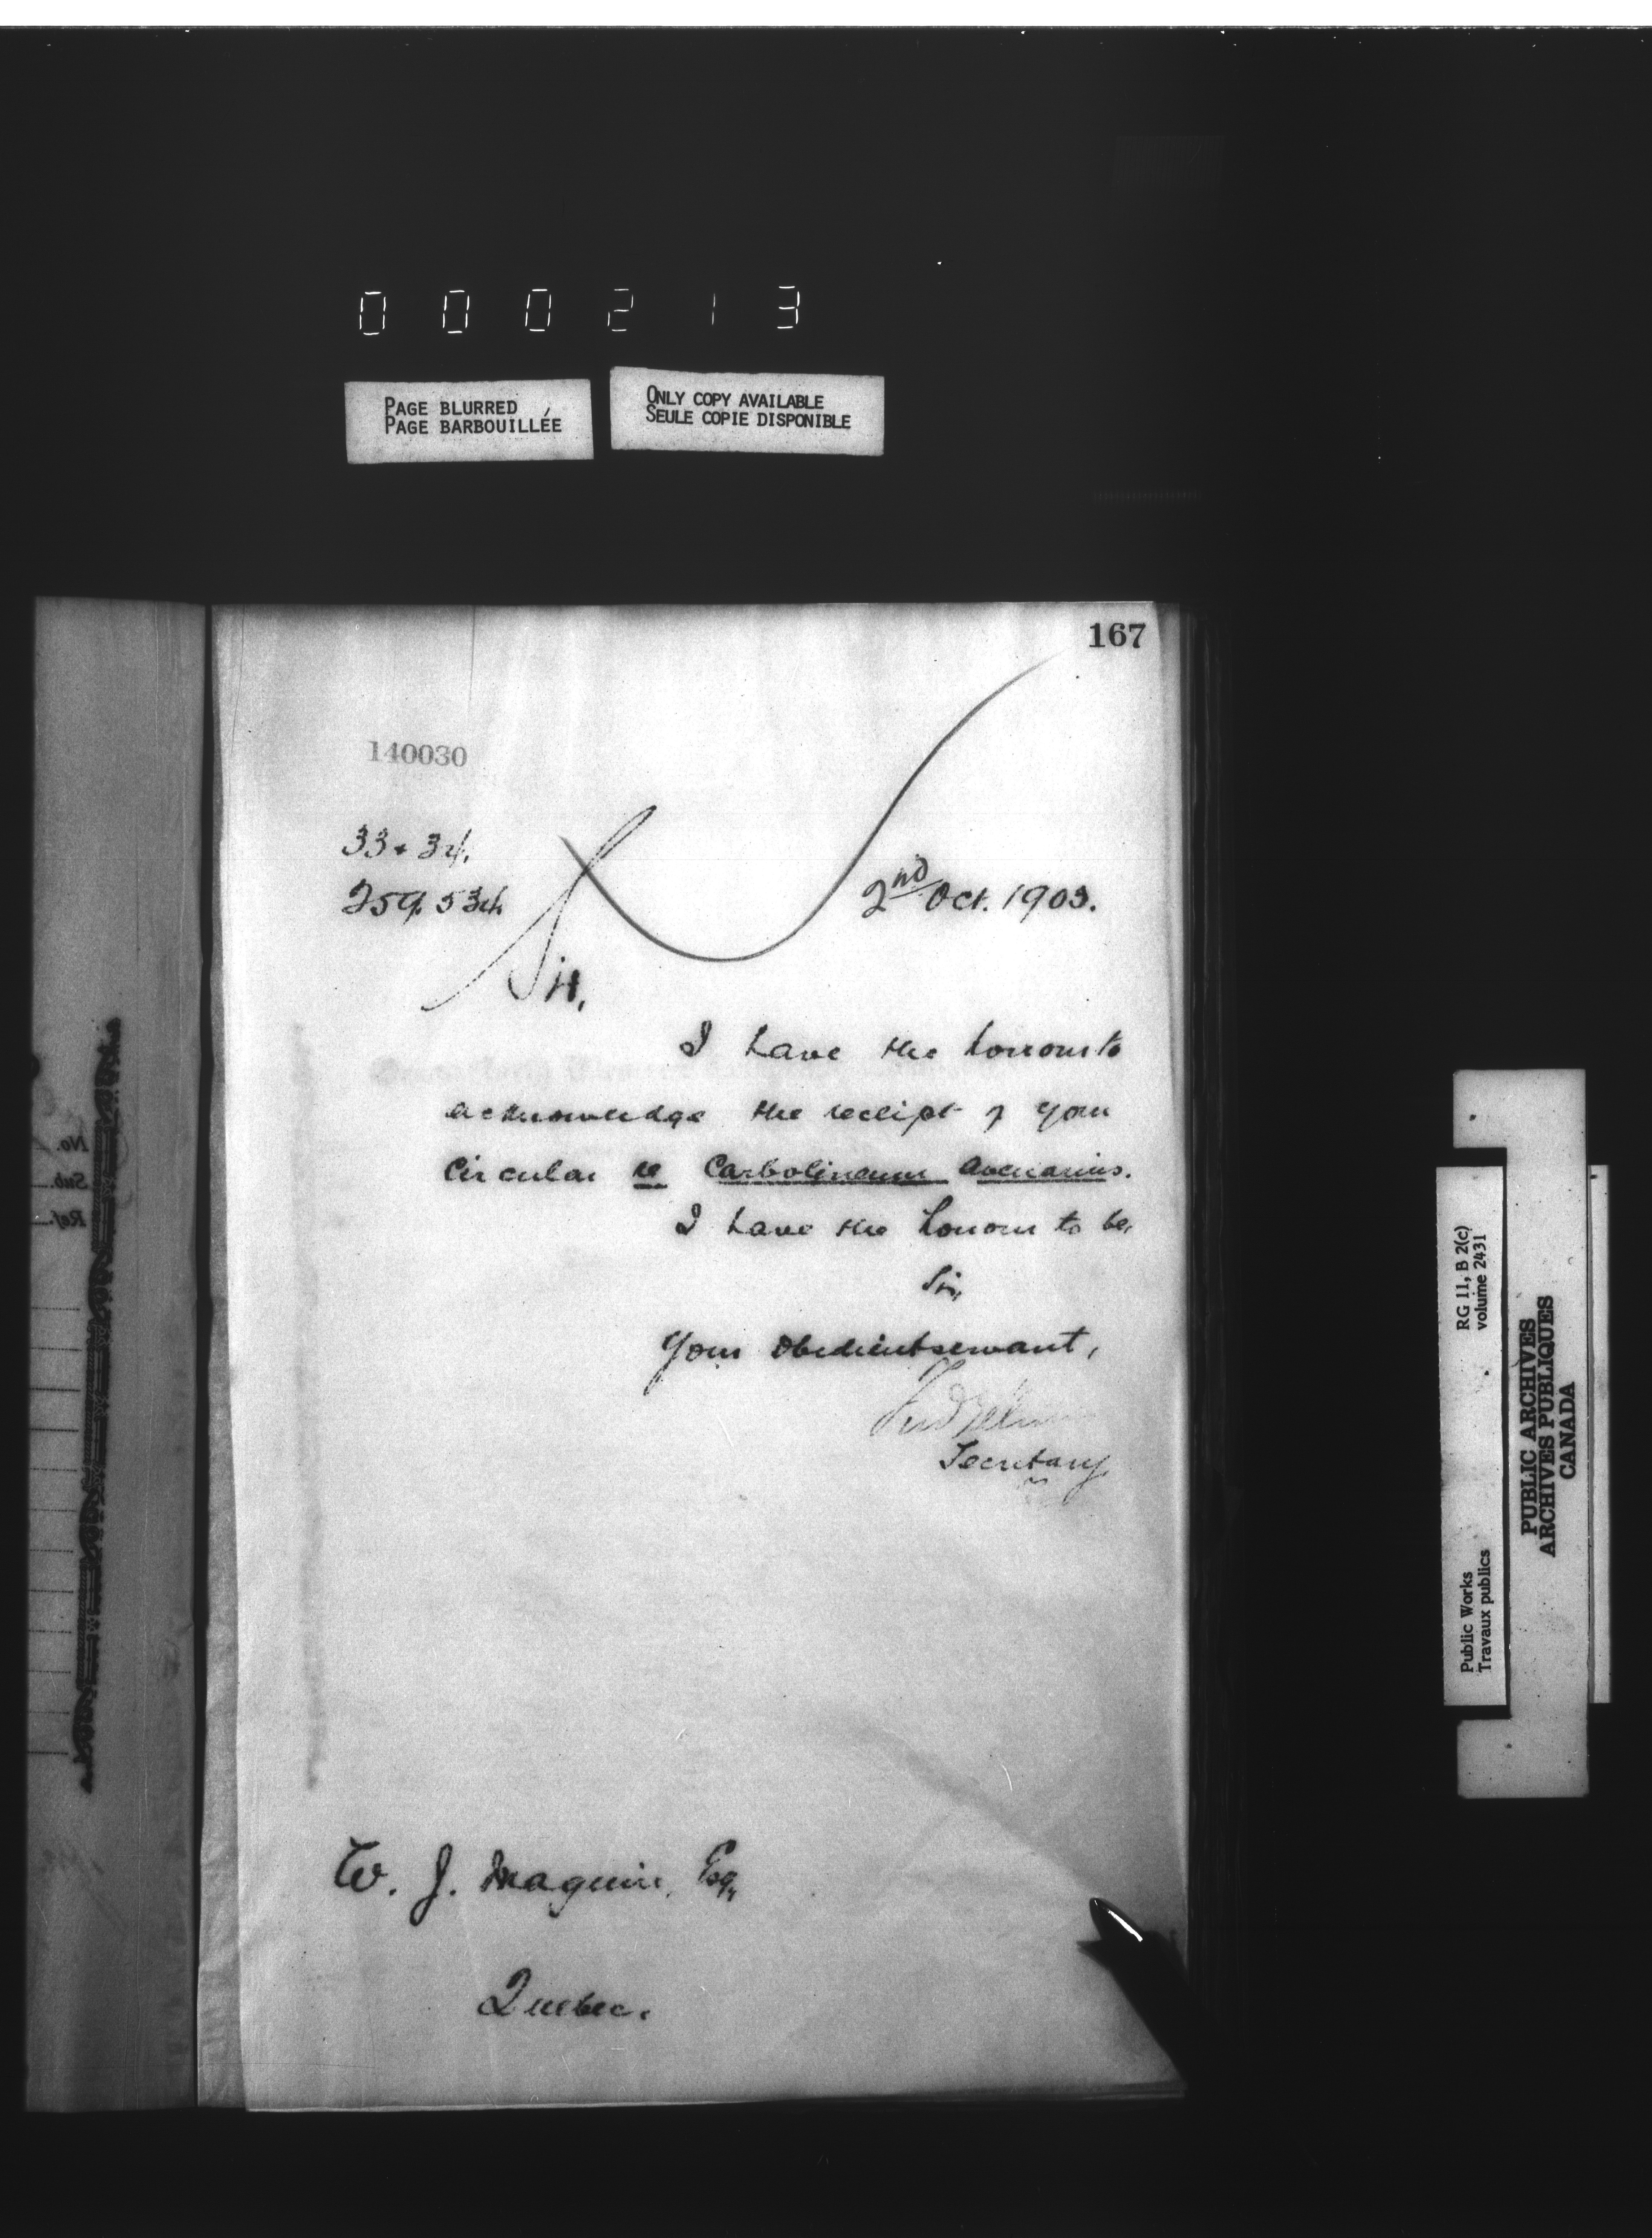 000213
PAGE BLURRED
PAGE BARBOUILLÉE
ONLY COPY AVAILABLE
SEULE COPIE DISPONIBLE
167
140030
33+34.
259.534
2nd Oct. 1903.
Sir,
I have the honour to
acknowledge the receipt of your
Circular re Carbolineum Avenarius.
I have the honour to be,
Sir,
Your obedient servant,
Secretary
W. J. Maguire, Esq.,
Quebec.
No.
Sub.
Ref.
RG 11, B 2(c)
volume 2431
Public Works
Travaux publics
PUBLIC ARCHIVES
ARCHIVES PUBLIQUES
CANADA